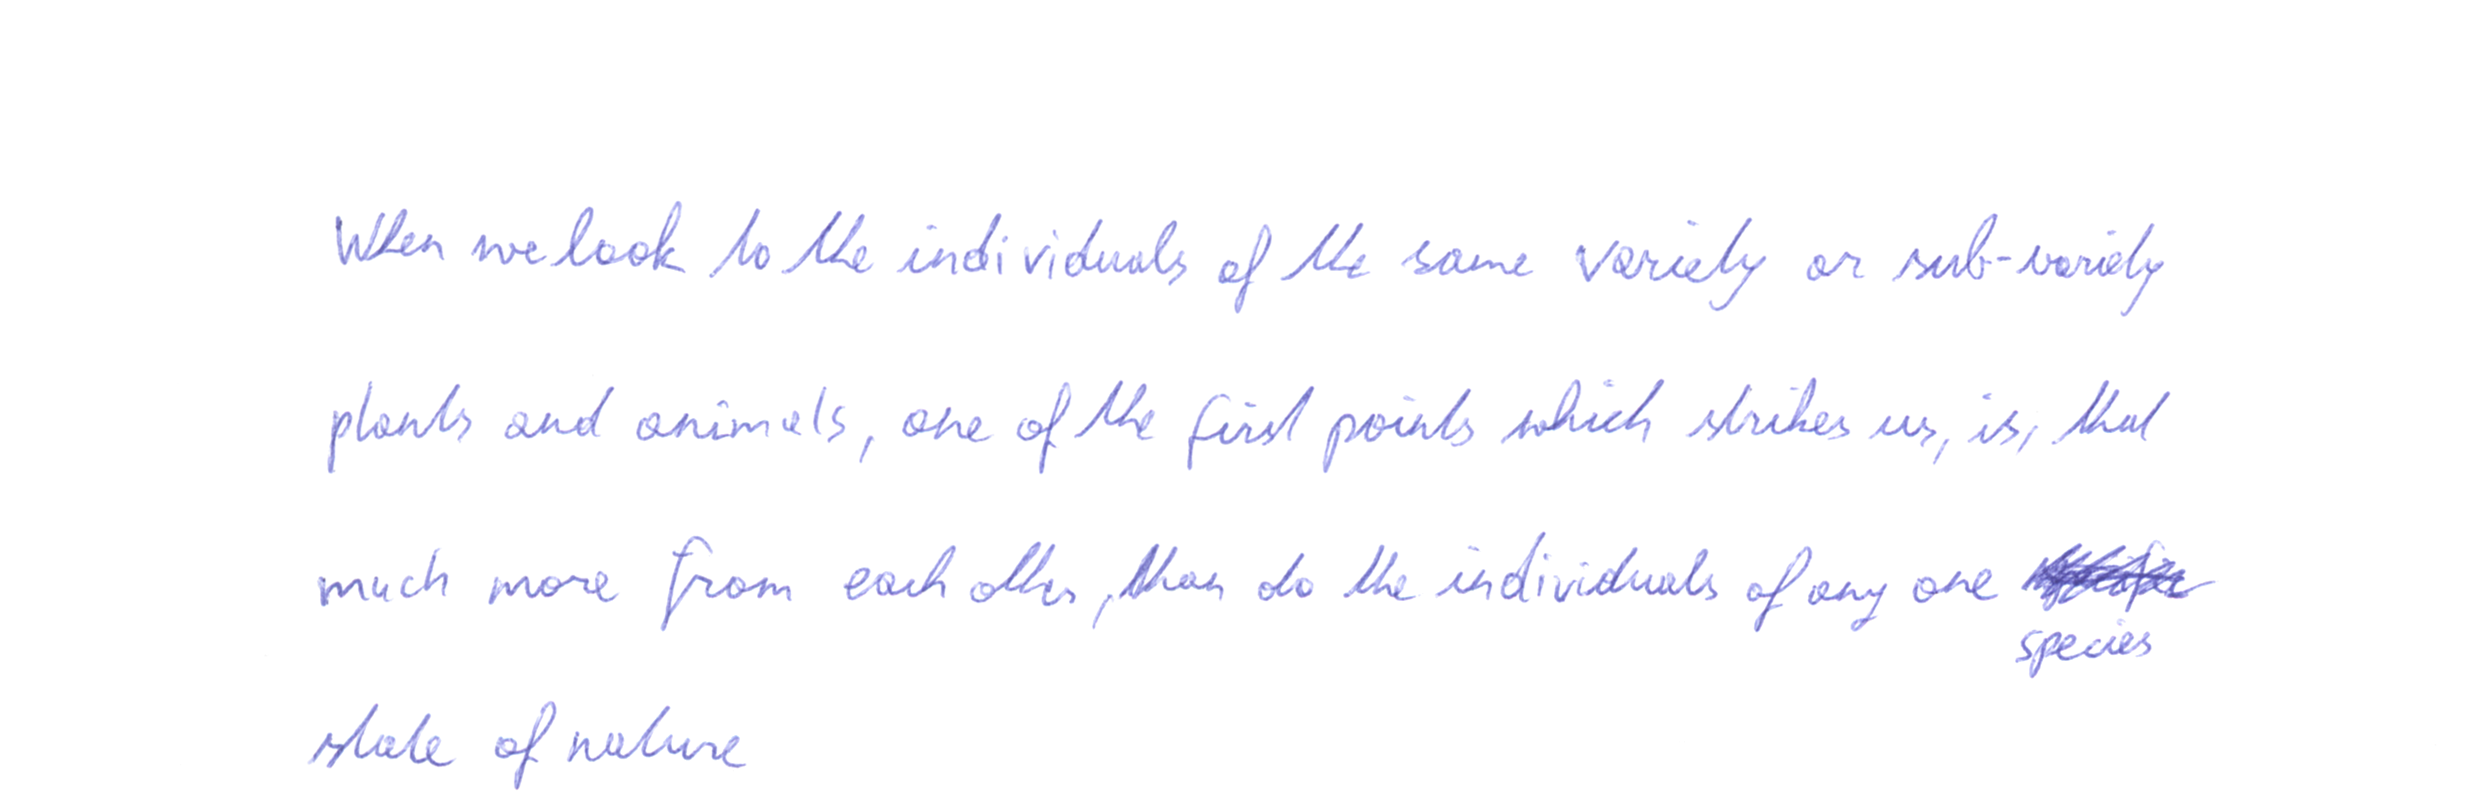 When we look to the individuals of the same variety or sub-variety
plants and animals, one of the first points which strikes us, is, that
much more from each other, than do the individuals of any one
species
state of nature